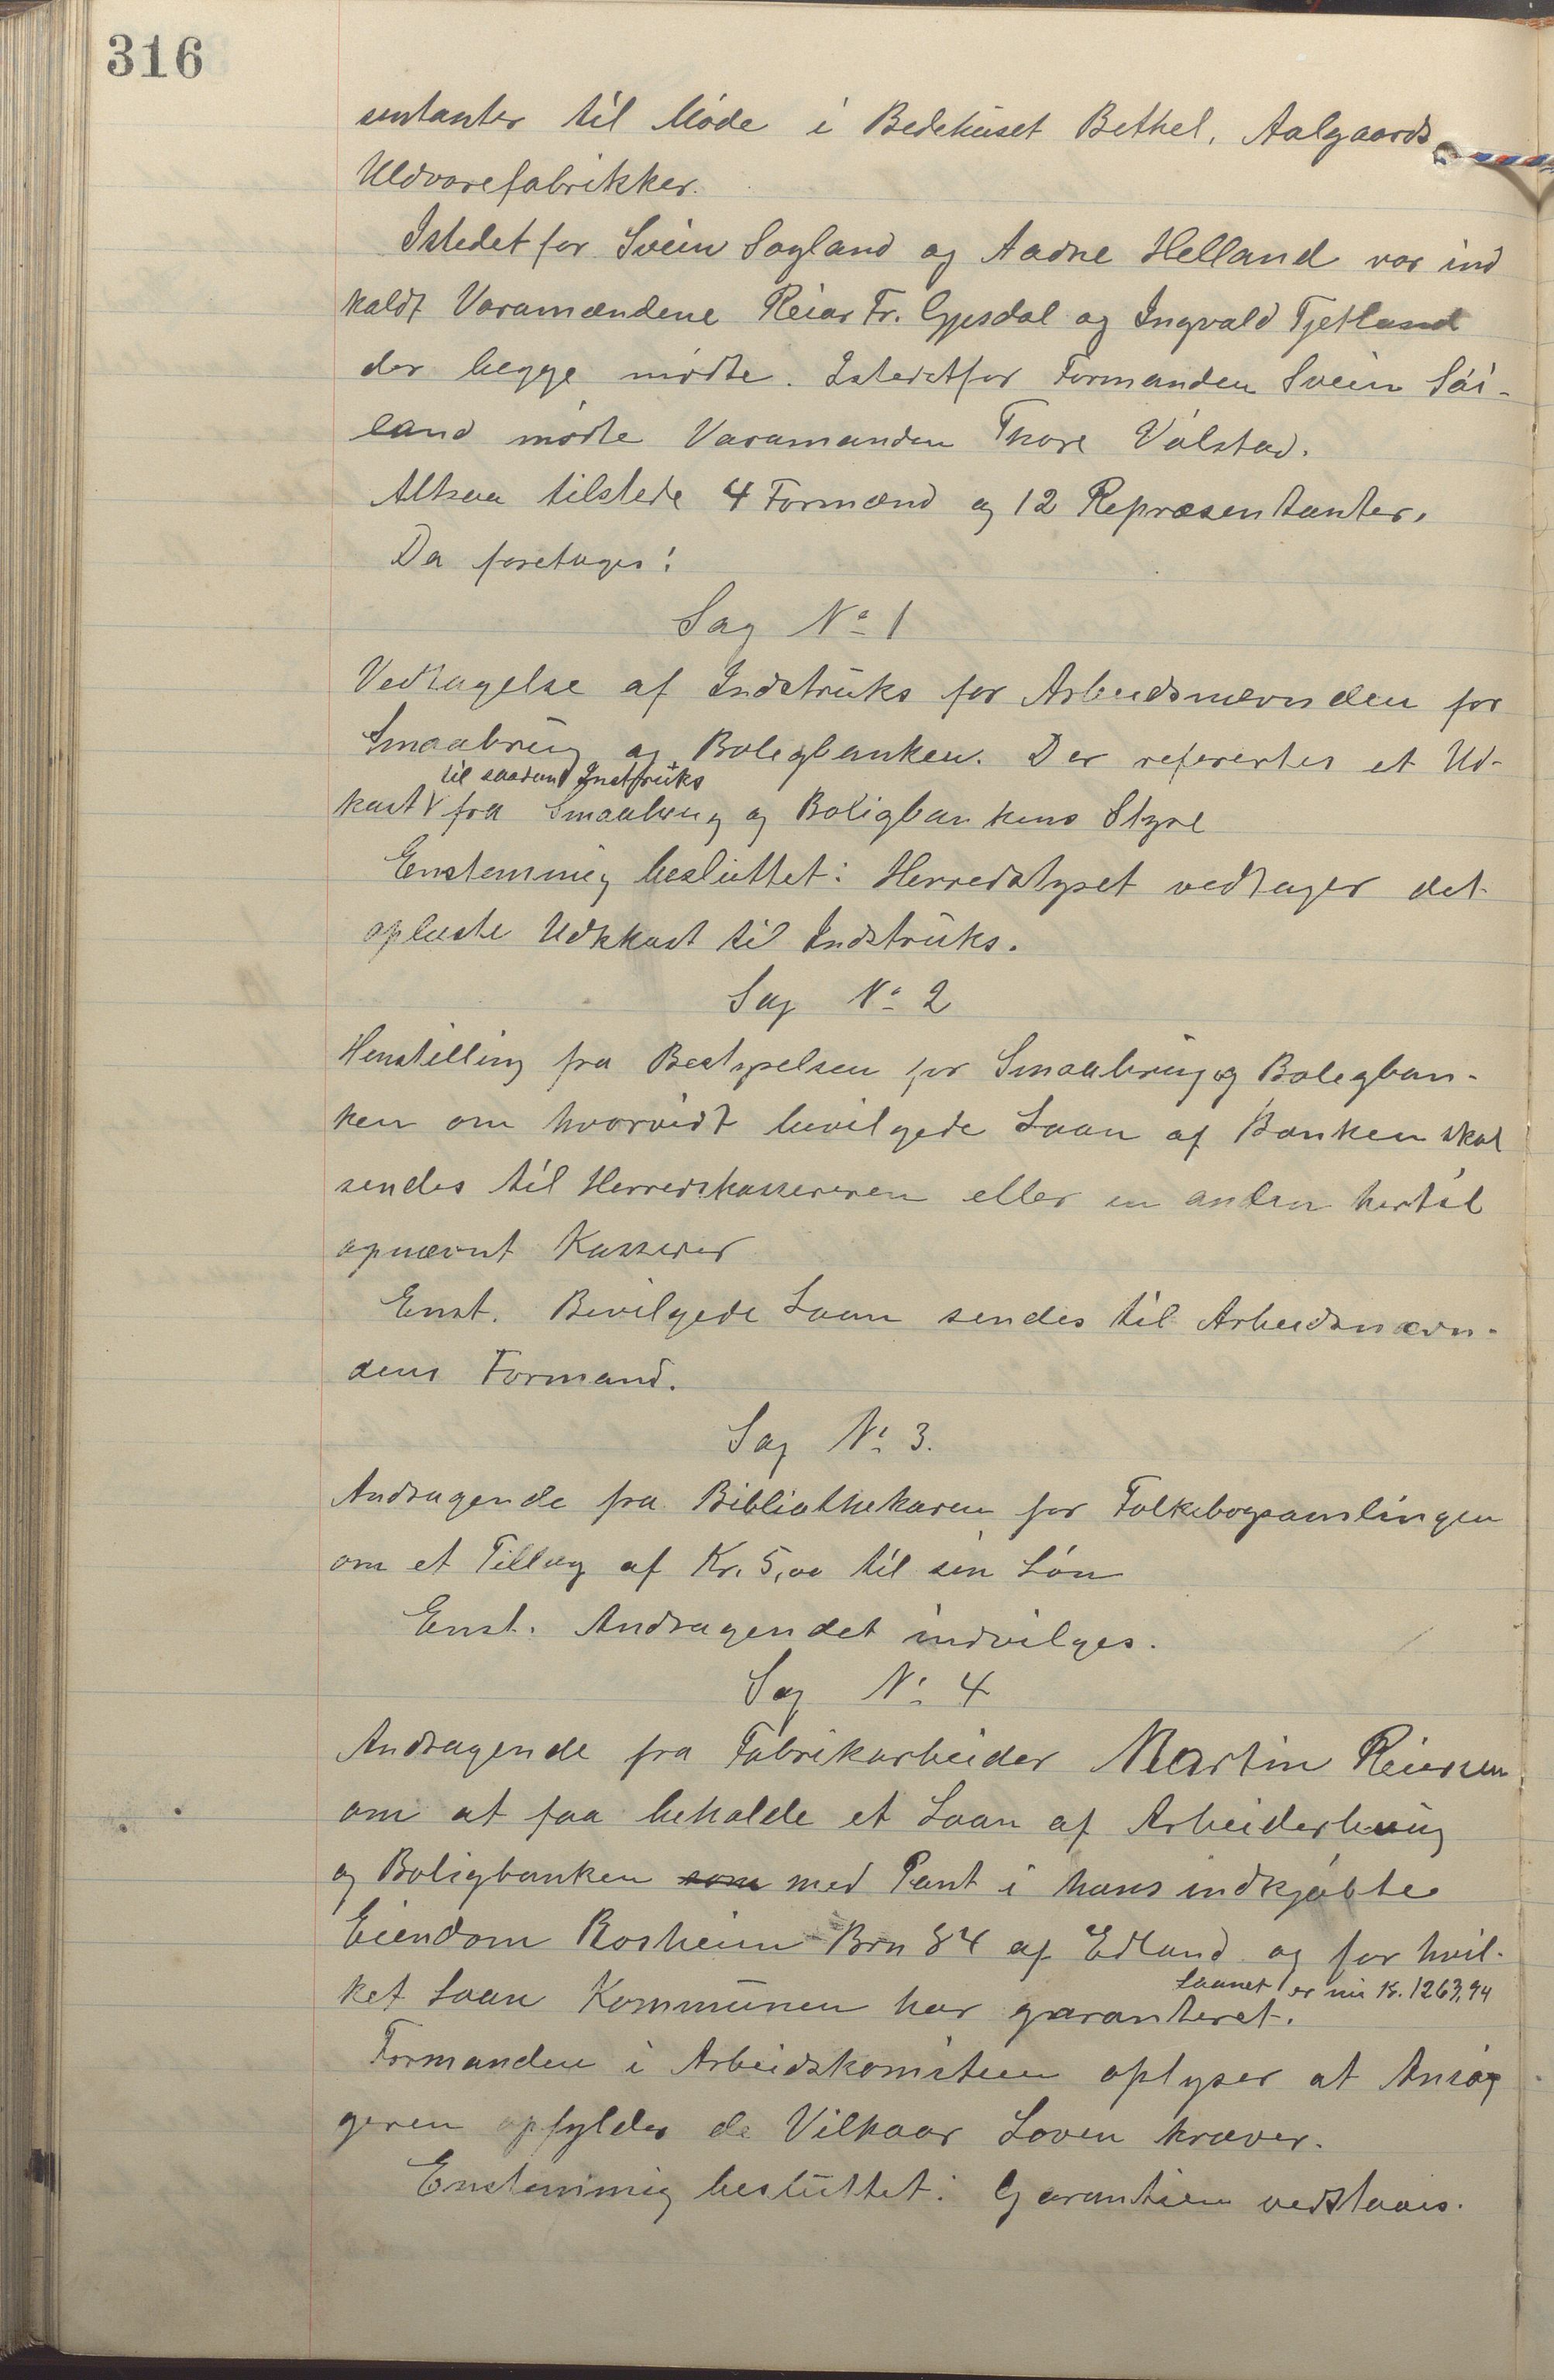 316
sentanter til Møde i Bedehuset Bethel, Aalgaards
Uldvarefabrikker.
Istedetfor Svein Sagland og Aadne Helland var ind
kaldt Varamændene Reiar Fr. Gjesdal og Ingvald Tjetland
der begge mødte. Istedetfor Formanden Svein Søi-
land mødte Varamanden Thore Vølstad.
Altsaa tilstede 4 Formænd og 12 Repræsentanter.
Da foretages:
Sag No 1
Vedtagelse af Indstruks for Arbeidsnævnden for
Smaabrug og Boligbanken. Der refereertes et Ud-
til saadan Instruks
kast fra Smaabrug og Boligbankens Styre
Enstemmig besluttet: Herredstyret vedtager det
oplæste Udkkast til Indstruks.
Sag No 2
Henstilling fra Bestyrelsen for Smaabrug og Boligban-
ken om hvorvidt bevilgede Laan af Banken skal
sendes til Herredskassereren eller en anden hertil
opnævnt Kasserer
Enst. Bevilgede Laan sendes til Arbeidsnævn-
dens Formand.
Sag No 3.
Andragende fra Bibliothekaren for Folkebogsamlingen
om et Tillæg af Kr. 5,00 til sin Løn
Enst. Andragendet indvilges.
Sag No 4
Andragende fra Fabrikarbeider Martin Reiersen
om at faa beholde et Laan af Arbeiderbrug
og Boligbanken som med Pant i hans indkjøbte
Eiendom Rosheim Brn 84 af Edland og for hvil-
Laanet er nu Kr. 1263,94
ket Laan Kommunen har garanteret.
Formanden i Arbeidskomiteen oplyser at Ansøg
geren opfylder de Vilkaar Loven kræver.
Enstemmig besluttet: Garantien vedstaaes.